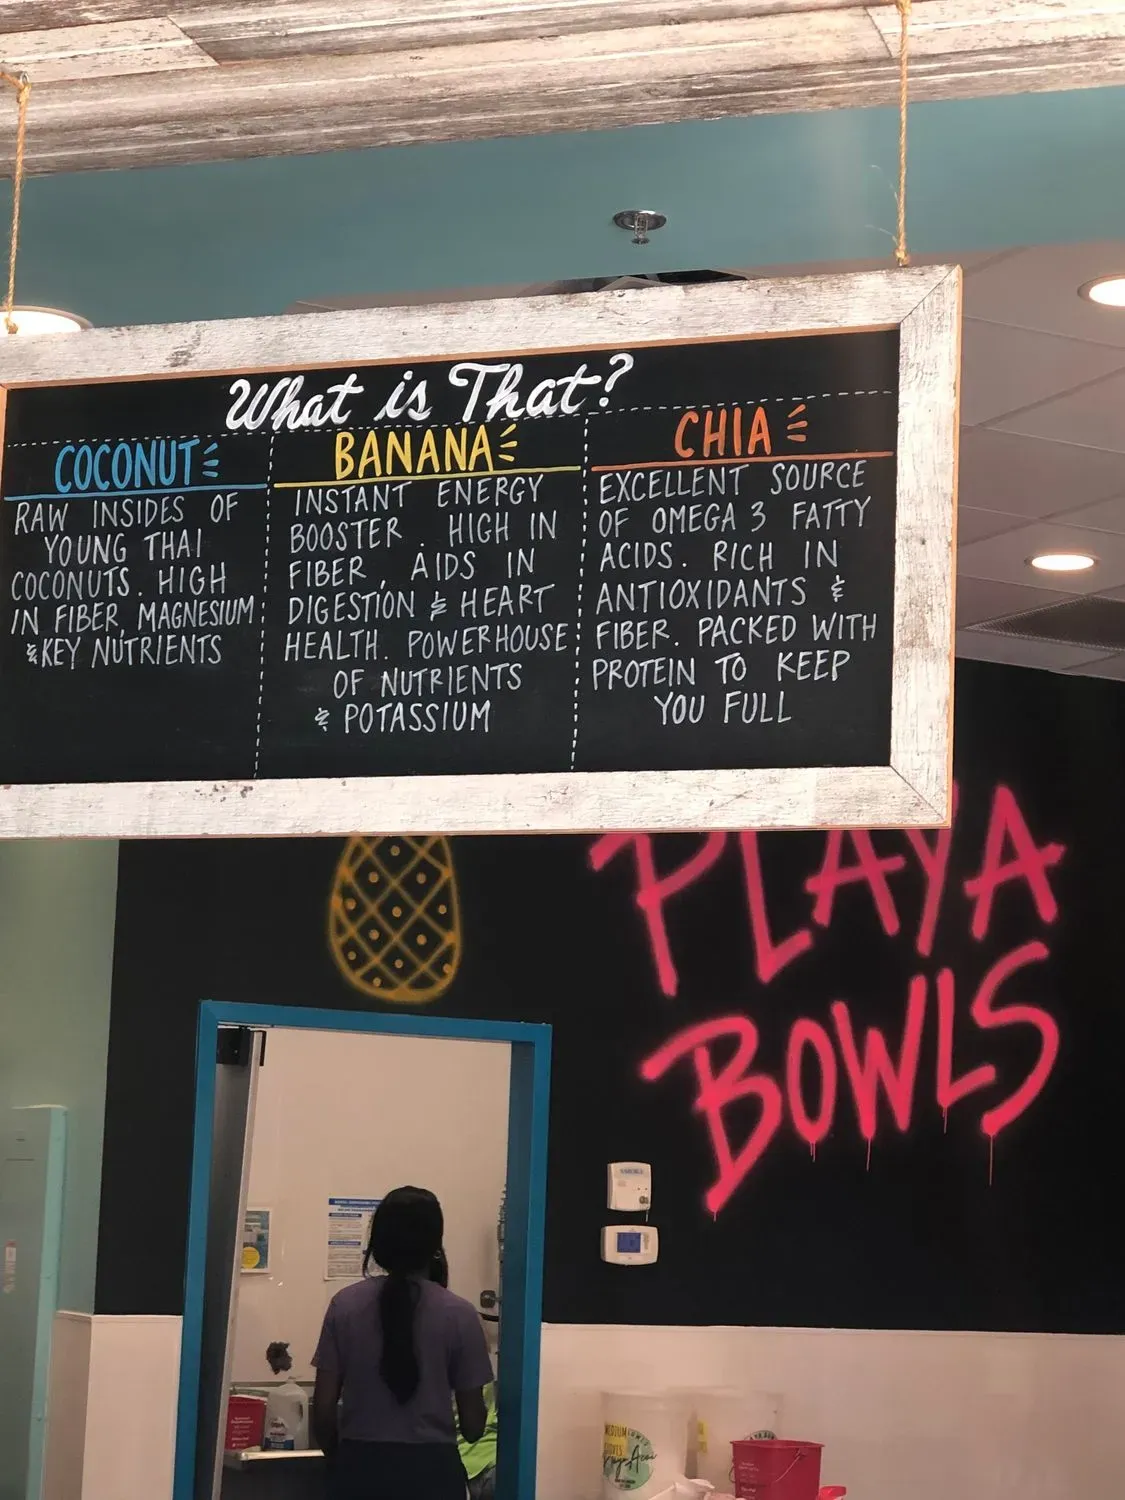 What is That?
COCONUT
RAW INSIDES OF
YOUNG THAI
COCONUTS. HIGH
IN FIBER, MAGNESIUM
& KEY NUTRIENTS
BANANA
INSTANT ENERGY
BOOSTER. HIGH IN
FIBER, AIDS IN
DIGESTION & HEART
HEALTH. POWERHOUSE
OF NUTRIENTS
& POTASSIUM
CHIA
EXCELLENT SOURCE
OF OMEGA 3 FATTY
ACIDS. RICH IN
ANTIOXIDANTS &
FIBER. PACKED WITH
PROTEIN TO KEEP
YOU FULL
PLAYA
BOWLS